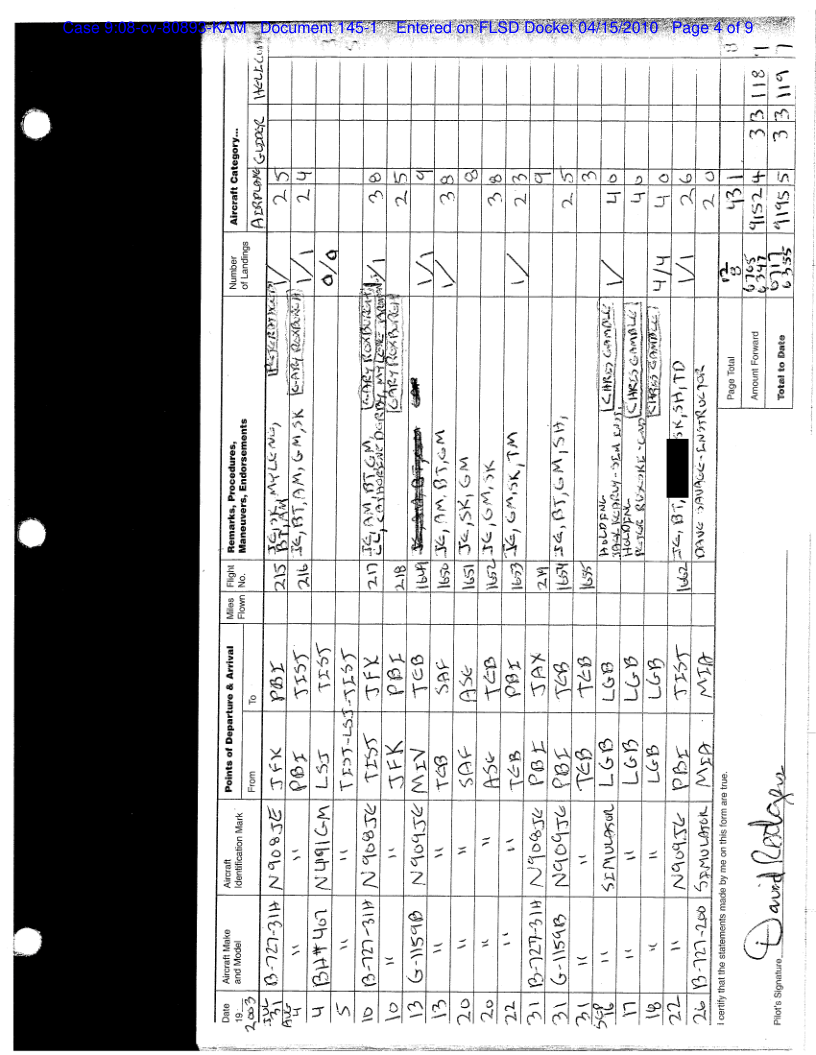 Case 9:08-cv-80893-KAM Document 145-1 Entered on FLSD Docket 04/15/2010 Page 4 of 9
Date 19 2003 Aircraft Make and Model Aircraft Identification Mark Points of Departure & Arrival From To Miles Flown Flight No. Remarks, Procedures, Maneuvers, Endorsements Number of Landings Aircraft Category... AIRPLANE GLIDER
JUL 31 B-727-31H N908JE JFK PBI 215 JE, SK, BT, AM 1/ 2 5
AUG 4 " " PBI TIST 216 JE, BT, AM, GM, SK GARY ROXBURGH 1/1 2 4
4 BH#407 N491GM LSJ TIST 0/0
5 " " TIST-LSJ-TIST
10 B-727-31H N908JE TIST JFK 217 JE, AM, BT, GM, GARY ROXBURGH 1/1 3 8
10 " " JFK PBI 218 GARY ROXBURGH 2 5
13 G-1159B N909JE MIV TEB 1649 1/1 9
13 " " TEB SAF 1650 JE, AM, BT, GM 1/ 3 8
20 " " SAF ASE 1651 JE, SK, GM 8
20 " " ASE TEB 1652 JE, GM, SK 3 8
22 " " TEB PBI 1653 JE, GM, SK, TM 1/ 2 3
31 B-727-31H N908JE PBI JAX 219 9
31 G-1159B N909JE PBI TEB 1654 JE, BT, GM, SH, 2 5
31 " " TEB TEB 1655 3
SEP 16 " SIMULATOR LGB LGB HOLDING 1/ 4 0
17 " " LGB LGB HOLDING 4 0
18 " " LGB LGB 4/4 4 0
22 " N909JE PBI TIST 1662 JE, BT, SK, SH, TD 1/1 2 6
26 B-727-200 SIMULATOR MIA MIA DAVE SAVAGE-INSTRUCTOR 2 0
I certify that the statements made by me on this form are true.
Page Total 12 8 43 1
Amount Forward 6705 6347 9152 4 3 3 118 1
Pilot's Signature David Rodgers Total to Date 6717 6355 9195 5 3 3 119 7